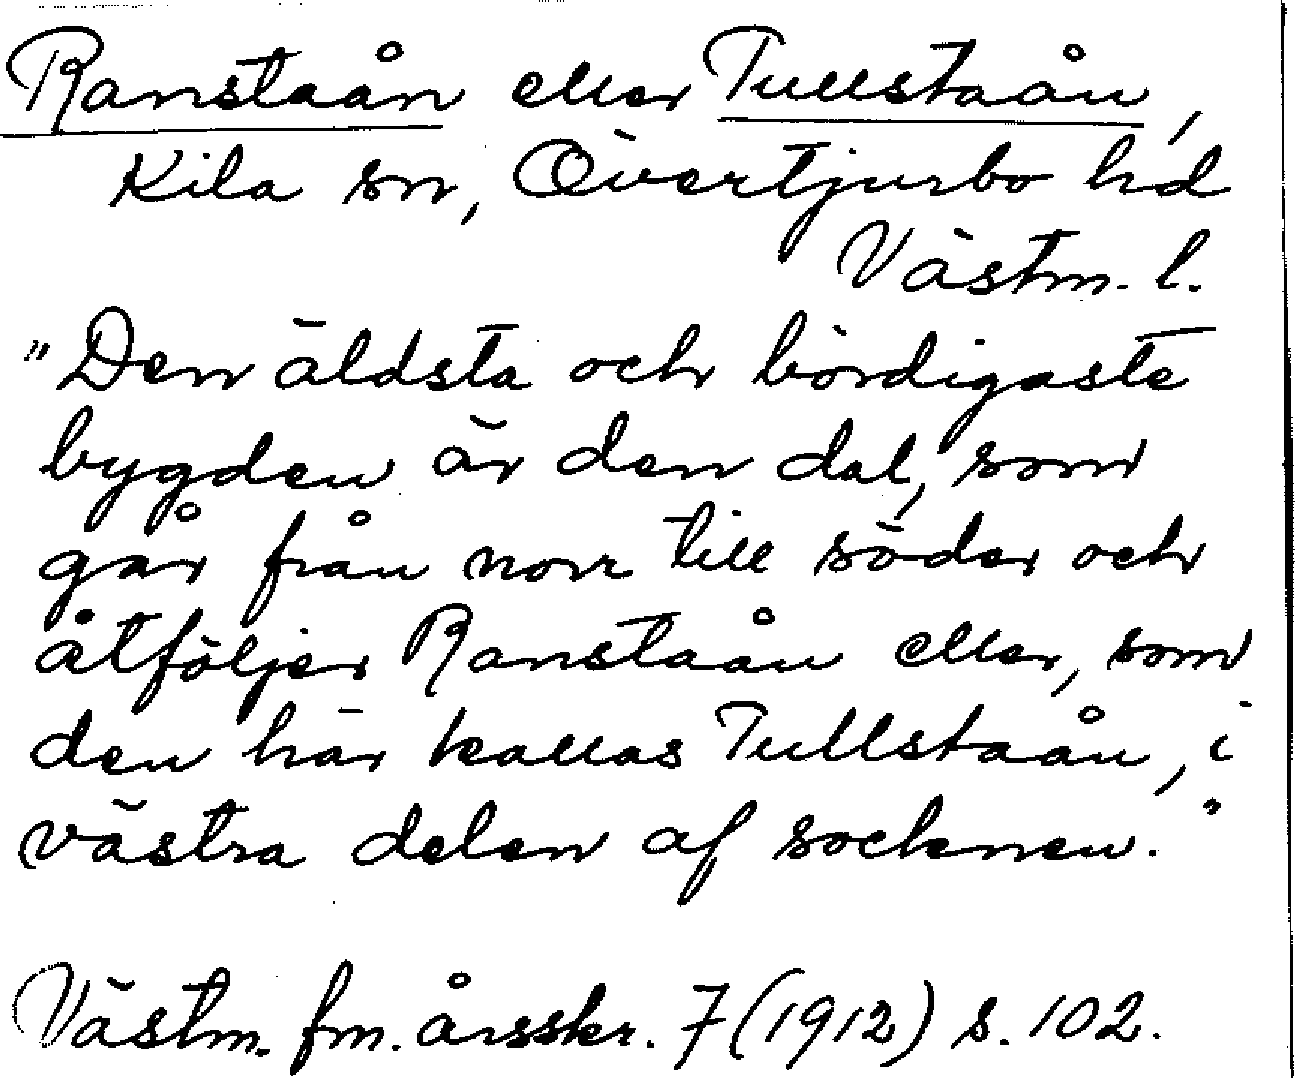 Ranstaån eller Tullstaån,
Kila sn, Övertjurbo hd
Västm. l.
"Den äldsta och bördigaste
bygden är den dal, som
går från norr till söder och
åtföljer Ranstaån eller, som
den här kallas Tullstaån, i
västra delen af socknen."
Västm. fm. årsskr. 7 (1912) s. 102.